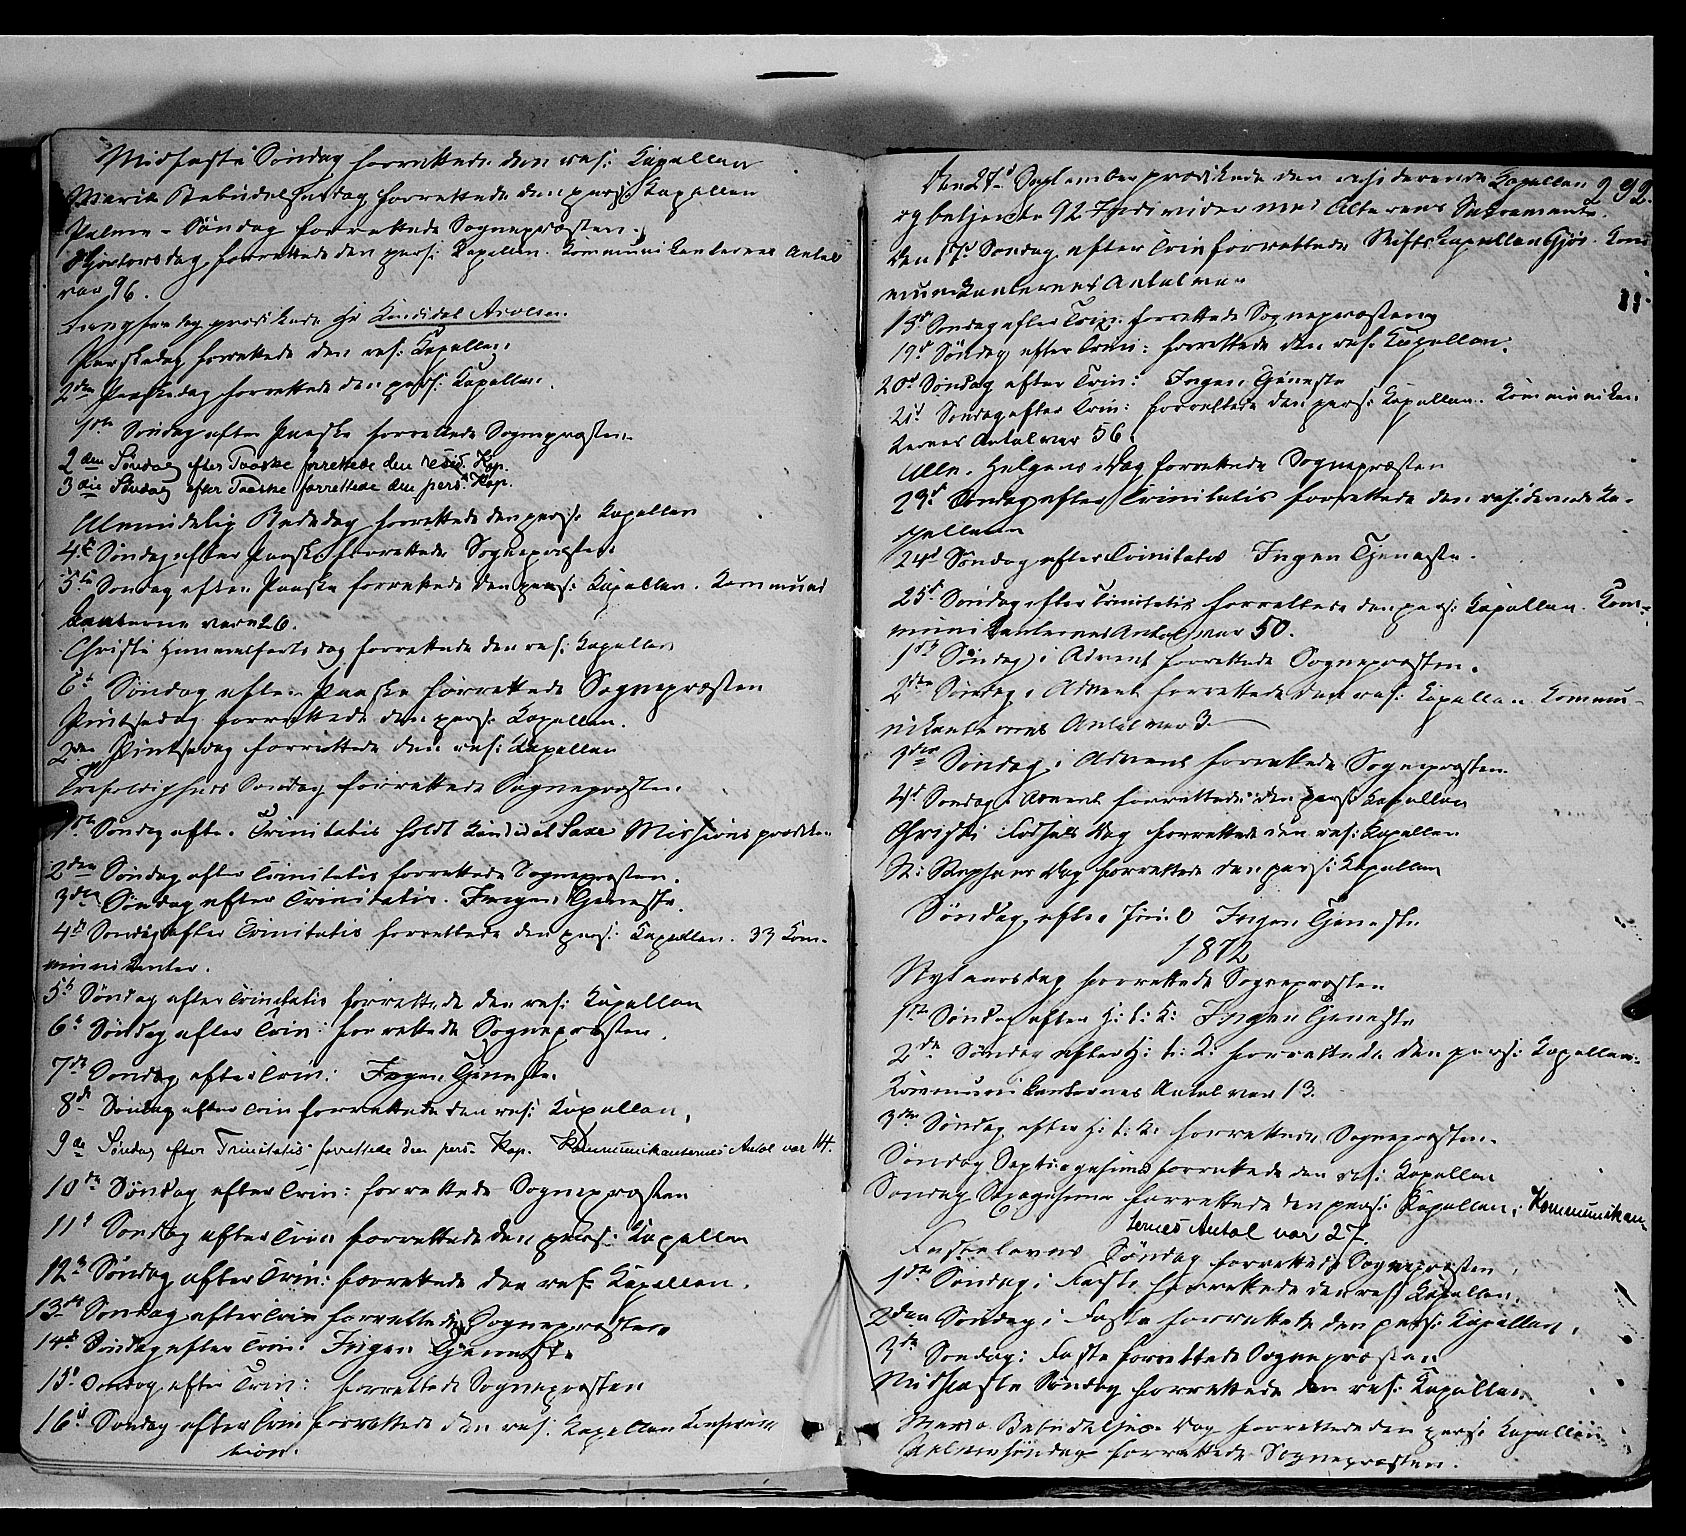 Midfaste Søndag forrettede den res: Kapellan
Mariæ Bebudelsesdag forrettede den pers: Kapellan
Palme-Søndag forrettede Sognepræsten.
Skjærtorsdag forrettede den pers: Kapellan. Kommunikanternes Antal
var 96.
Langfredag prædikede Hr Kandidat
Paaskedag forrettede den res: Kapellan.
2den Paaskedag forrettede den pers: Kapellan.
1ste Søndag efter Paaske forrettede Sognepræsten.
2den Søndag efter Paaske forrettede den resid. Kap.
3die Søndag efter Paaske forrettede den pers. Kap.
Almindelig Bededag forrettede den pers: Kapellan
4de Søndag efter Paaske forrettede Sognepræsten
5te Søndag efter Paaske forrettede den pers: Kapellan. Kommuni
kanterne vare 26.
Christi Himmelfarts dag forrettede den res: Kapellan
6te Søndag efter Paaske forrettede Sognepræsten
Pintsedag forrettede den pers: Kapellan.
2den Pintsedag forrettede den res: Kapellan
Trefoldigheds Søndag forrettede Sognepræsten.
1ste Søndag efter Trinitatis holdt Kandidat Missions prædiken
2den Søndag efter Trinitatis forrettede Sognepræsten.
3die Søndag efter Trinitatis. Ingen Tjeneste.
4de Søndag efter Trinitatis forrettede den pers: Kapellan. 33 Kom-
munikanter.
5te Søndag efter Trinitatis forrettede den res: Kapellan
6te Søndag efter Trin: forrettede Sognepræsten.
7de Søndag efter Trin: Ingen Tjeneste.
8de Søndag efter Trin forrettede den res: Kapellan.
9de Søndag efter Trinitatis forrettede den pers. Kap. Kommunikanternes Antal var 14.
10de Søndag efter Trin: forrettede Sognepræsten
11te Søndag efter Trin forrettede den pers: Kapellan
12te Søndag efter Trin: forrettede den res: Kapellan.
13de Søndag efter Trin forrettede Sognepræsten
14de Søndag efter Trin: Ingen Tjeneste
15de Søndag efter Trin: forrettede Sognepræsten
16de Søndag efter Trin forrettede den res: Kapellan Konfirma
tion.
Den 27de September prædikede den residerende Kapellan 292.
og betjente 92 Individer med Alterens Sacramente.
Den 17de Søndag efter Trin forrettede Stiftskapellan Gjør. Kom
munikanternes Antal var 11
18de Søndag efter Trin. forrettede Sognepræsten
19de Søndag efter Trin: forrettede den res: Kapellan.
20de Søndag efter Trin: Ingen Tjeneste
21de Søndag efter Trin: forrettede den pers: Kapellan. Kommunikan
ternes Antal var 56
Alle Helgens Dag forrettede Sognepræsten
23de Søndag efter Trinitatis forrettede den residerende Ka-
pellan
24de Søndag efter Trinitatis Ingen Tjeneste.
25de Søndag efter Trinitatis forrettede den pers: Kapellan. Kom-
munikanternes Antal var 50.
1ste Søndag i Advent forrettede Sognepræsten.
2den Søndag i Advent forrettede den res: Kapellan Kommu-
nikanternes Antal var 3
3die Søndag i Advent forrettede Sognepræsten
4de Søndag i Advent forrettede den pers: Kapellan
Christi Fødsels Dag forrettede den res: Kapellan
St: Stephans Dag forrettede den pers: Kapellan
Søndag efter Juul Ingen Tjeneste
1872
Nytaarsdag forrettede Sognepræsten
1ste Søndag efter H: t: K: Ingen Tjeneste
2den Søndag efter H: t: K: forrettede den pers: Kapellan.
Kommunikanternes Antal var 13.
3die Søndag efter H: t: K: forrettede Sognepræsten.
Søndag Septuagesima forrettede den res: Kapellan
Søndag Sexagesima forrettede den pers: Kapellan. Kommunikan
ternes Antal var 27.
Fastelavns Søndag forrettede Sognepræsten.
1ste Søndag i Faste forrettede den res: Kapellan.
2den Søndag i Faste forrettede den pers: Kapellan.
3die Søndag i Faste forrettede Sognepræsten
Midfaste Søndag forrettede den res: Kapellan
Maria Bebudelses Dag forrettede den pers: Kapellan
Palmesøndag forrettede Sognepræsten.